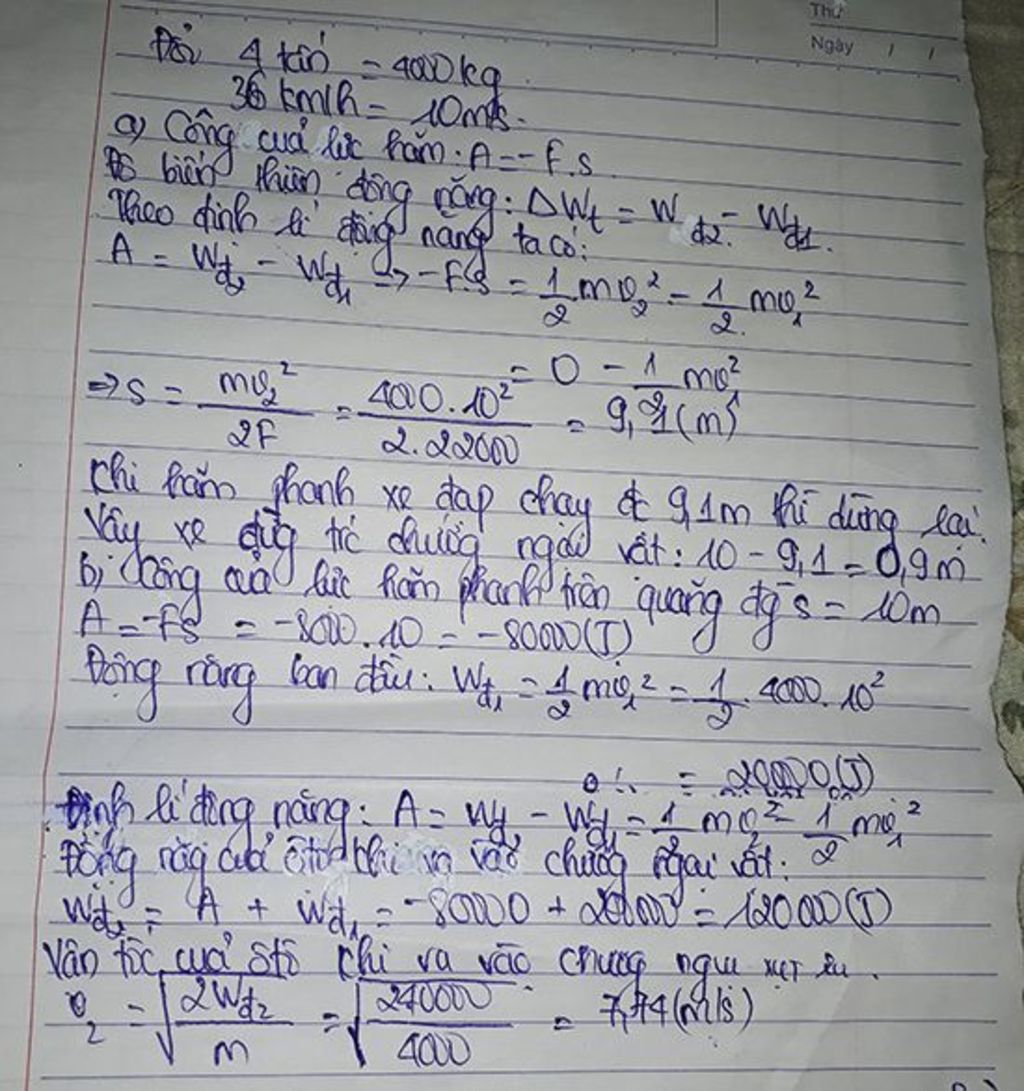 Thứ
Ngày / /
Đổi 4 tấn = 4000kg
36 km/h = 10m/s.
a) Công cuả lực hãm: A = -F.S
Độ biến thiên động năng: ΔWt = Wđ2. - Wđ1.
Theo định lí động năng ta có:
A = Wđ2 - Wđ1 => -F.S = 1/2 mv2² - 1/2. mv1²
= 0 - 1/2 mv1²
=> S = mv2²/2F = 4000.10²/2.22000 = 9,1(m)
Khi hãm phanh xe đạp chạy đc 9,1m thì dừng lại.
Vậy xe dừg trc chướg ngại vật: 10 - 9,1 = 0,9m
b) Công cuả lực hãm phanh trên quãng đg s = 10m
A = -FS = -8000.10 = -80000(J)
Động năng ban đầu: Wđ1 = 1/2 mv1² = 1/2. 4000.10²
= 200000(J)
Định lí động năng: A = Wđ2 - Wđ1 = 1/2 mv2² - 1/2 mv1²
Động năg cuả ôtô khi va vào chướg ngại vật:
Wđ2 = A + Wđ1 = -80000 + 200000 = 120000(J)
Vận tốc cuả ôtô khi va vào chướg
v2 = √2Wđ2/m = √240000/4000 = 7,74(m/s)